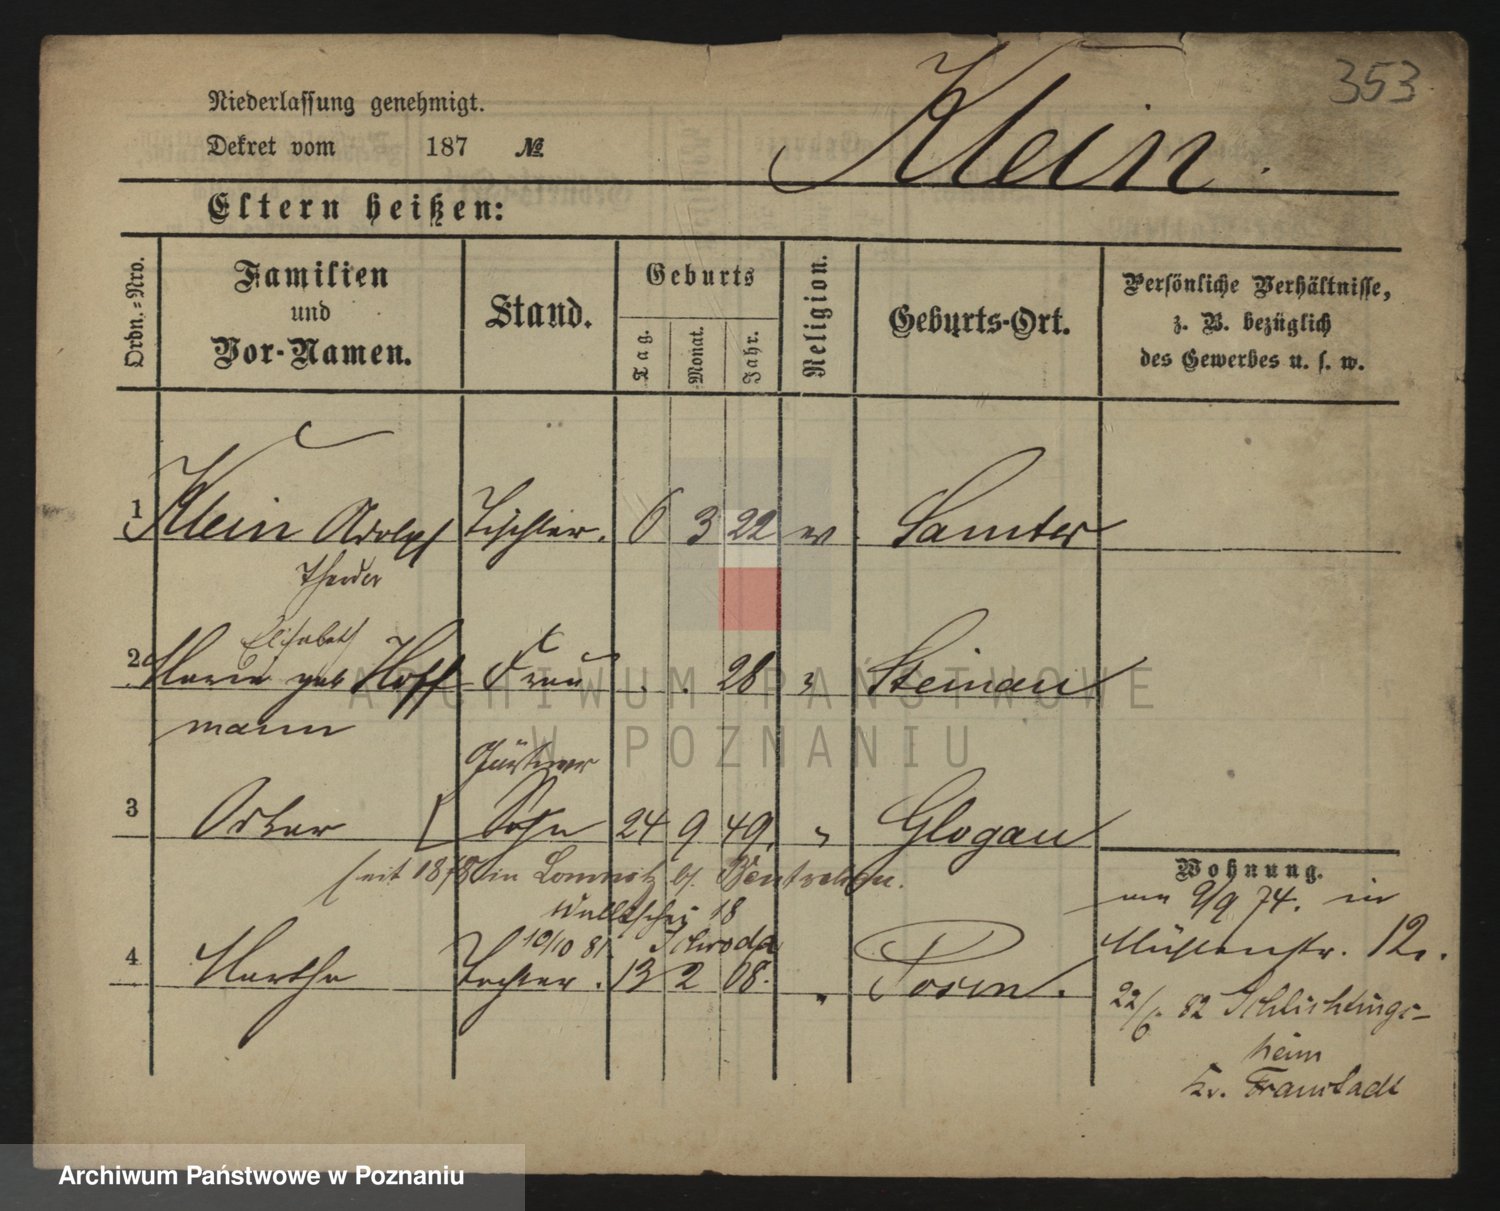 353
Niederlassung genehmigt.
Dekret vom 187 №
Klein.
Eltern heißen:
Ordn.-Nro.
Familien
und
Vor-Namen.
Stand.
Geburts
Tag.
Monat.
Jahr.
Religion.
Geburts-Ort.
Persönliche Verhältnisse,
z. B. bezüglich
des Gewerbes u. s. w.
1 Klein Adolph Tischler. 6 3 22 ev Samter
Theodor
Elisabeth
2 Maria geb Hoff Frau . . 28 " Steinau
mann
Gärtner
3 Oskar Sohn 24 9 49. " Glogau
seit 1878 in Lomnitz b. Bentschen.
18
10/10 81. Schroda
4 Martha Tochter. 13 2 08. " Posen.
Wohnung.
am 9/9 74. in
Mühlenstr. 12.
22/6. 82 Schlichtings-
heim
Kr. Fraustadt
ARCHIWUM PAŃSTWOWE
W POZNANIU
Archiwum Państwowe w Poznaniu